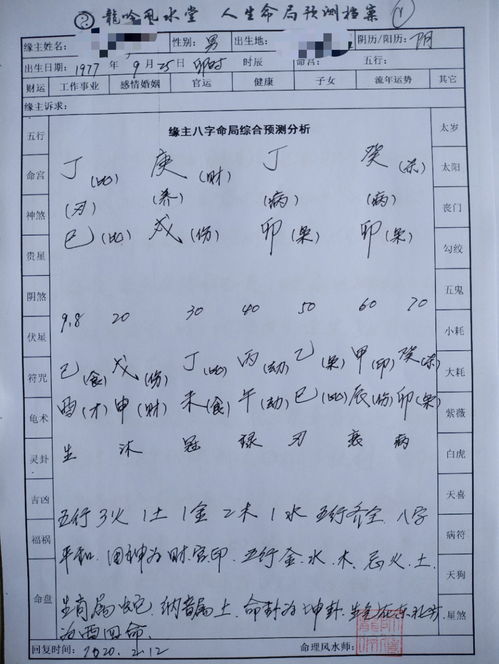 龍吟風水堂 人生命局预测档案
缘主姓名: 性别: 男 出生地: 阴历/阳历: 阴
出生日期: 1977 年 9 月 25日 卯时 时辰 命宫: 五行:
财运 工作事业 感情婚姻 官运 健康 子女 流年运势 其它
缘主诉求:
缘主八字命局综合预测分析
五行 太岁
丁(比) 庚(财) 丁 癸(杀)
命宫 太阳
(刃) (养) (病) (病)
神煞 丧门
巳(比) 戌(伤) 卯(枭) 卯(枭)
贵星 勾绞
阴煞 五鬼
9.8 20 30 40 50 60 70
伏星 小耗
己(食) 戊(伤) 丁(比) 丙(劫) 乙(枭) 甲(印) 癸(杀)
符咒 大耗
酉(才) 申(财) 未(食) 午(劫) 巳(比) 辰(伤) 卯(枭)
龟术 紫薇
生 沐 冠 禄 刃 衰 病
灵卦 白虎
吉凶 天喜
五行 3火 1土 1金 2木 1水 五行齐全 八字
福祸 病符
平和. 用神为财官印. 五行金、水、木. 忌火、土.
天狗
生肖属蛇. 纳音属土. 命卦为坤卦.
命盘 星煞
为西四命.
回复时间: 2020.2.12 命理风水师: